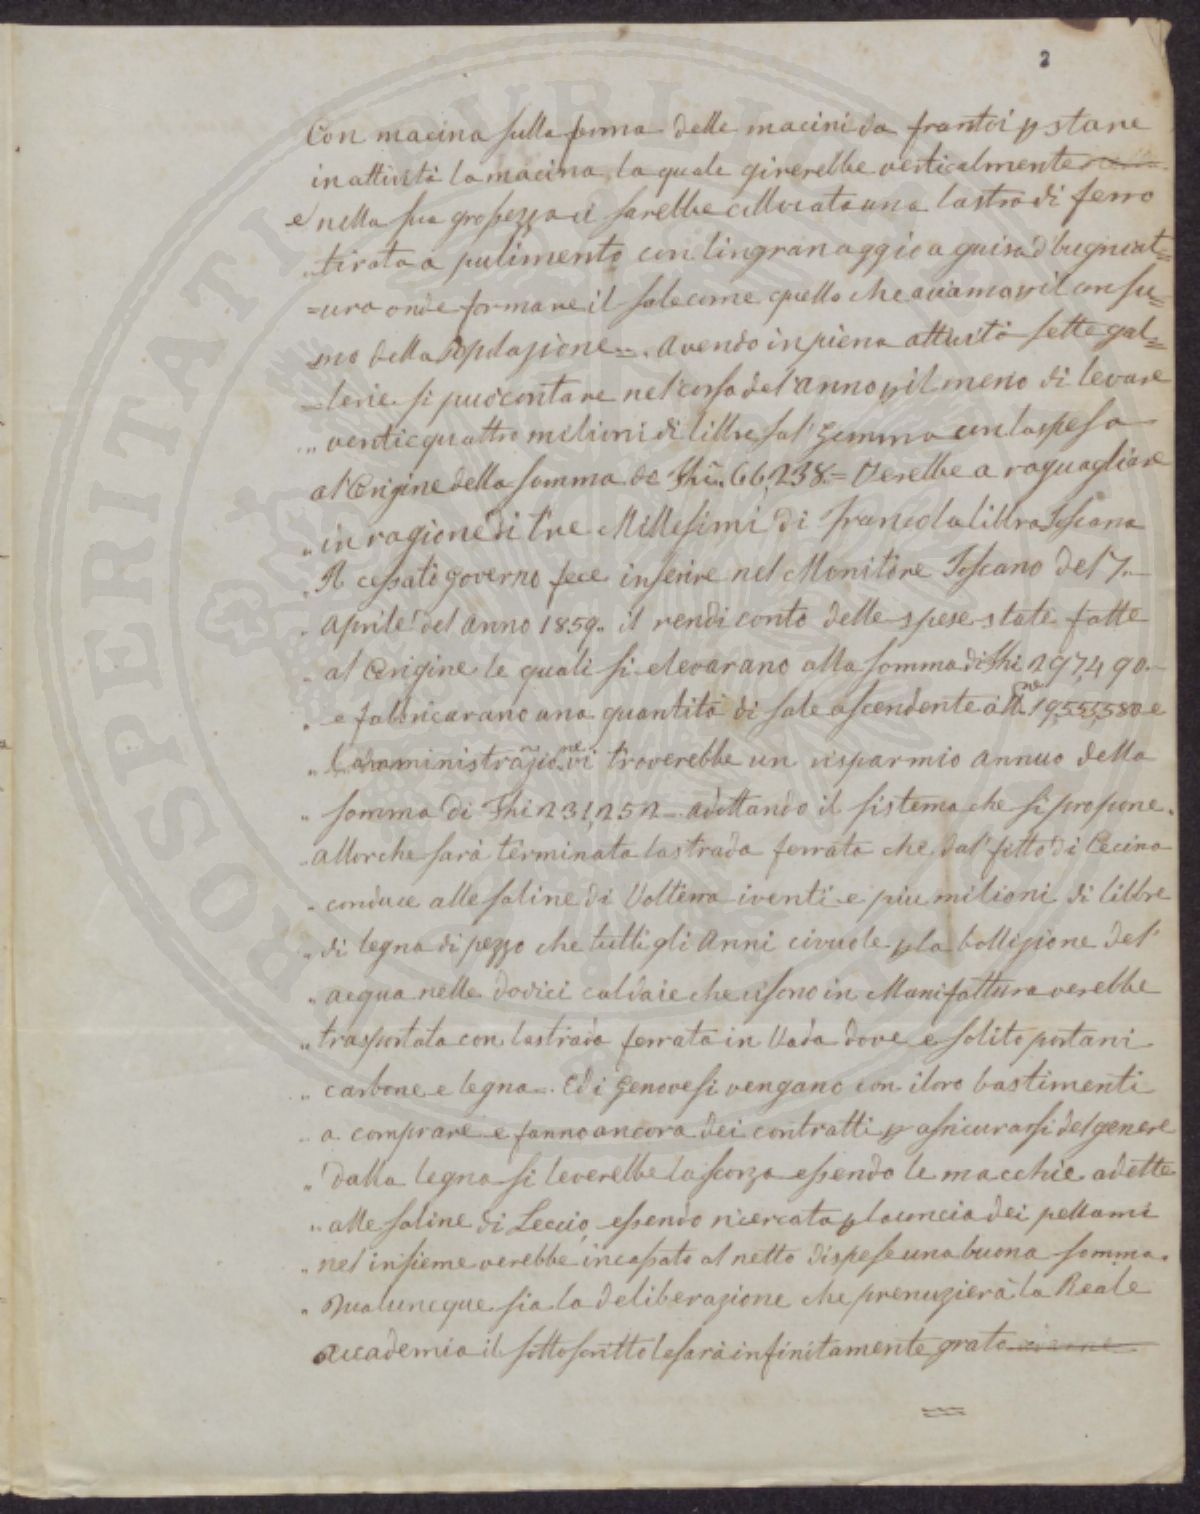 2
Con macina sulla forma delle macini da frantoi p stare
in attività la macina, la quale girerebbe verticalmente
e nella sua grossezza ci sarebbe collocata una lastra di ferro
tirata a pulimento con lingranaggio a guisa d bugnat=
=ura onde formare il sale come quello che aviamo p il consu=
mo della popolazione =. Avendo in piena attività sette gal=
=lerie si può contare nel corso del anno p il meno di levare
" venticquattro milioni di libbre sal Gemma con la spesa
al Origine della somma de Fhi. 66,238 = Verebbe a raguagliare
" in ragione di tre Millesimi di franco la libbra Toscana
" Il cessato governo fece inserire nel Monitore Toscano del 7.
" Aprile del anno 1859. il rendi conto delle spese state fatte
" al Origine le quali si elevarano alla somma di Fhi 297,490.-
" e fabbricarano una quantità di sale ascendente a lb. 19,553,580 e
" Ladaministrazione vi troverebbe un risparmio annuo della
" somma di Fhi 231,252 - adottando il sistema che si propone.
" allorche sarà terminata la strada ferrata che dal fitto di Cecina
" conduce alle saline di Volterra i venti e piu milioni di libbre
" di legna di pezzo che tutti gli Anni civuole p la bollizione del
" acqua nelle dodici caldaie che ci sono in Manifattura verebbe
" trasportata con la strada ferrata in Vada dove e solito portarvi
" carbone e legna =. Ed i Genovesi vengano con i loro bastimenti
" a comprare e fanno ancora dei contratti p assicurarsi del genere
" Dalla legna si leverebbe la scorza essendo le macchie adette
" alle saline di Leccio, essendo ricercata p la concia dei pellami
" nel insieme verebbe incassato al netto di spese una buona somma.
" Qualuncque sia la deliberazione che prenuzierà la Reale
accademia il sottoscritto le sarà infinitamente grato